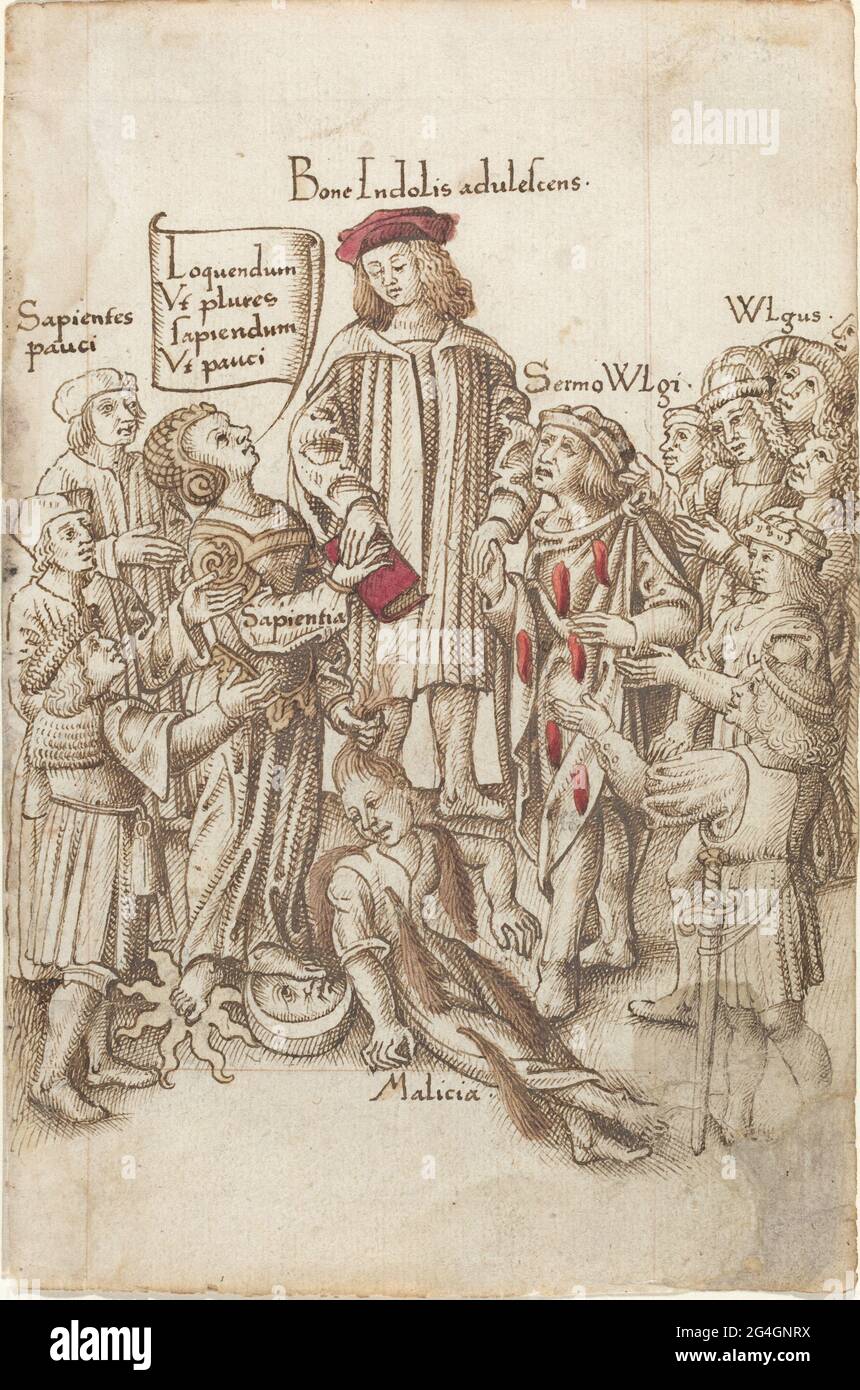 Bone Indolis adulescens.
Loquendum
Vt plures
sapiendum
Vt pauci
Sapientes
pauci
WLgus.
Sermo WLgi.
Sapientia
Malicia.
alamy
alamy
Image ID: 2G4GNRX
www.alamy.com